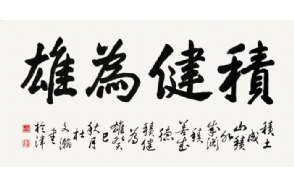 積健為雄
積土
成
山積
水
成淵
積
善成
德
積健
為
雄癸
巳
秋月
杜
文瀚
書
於津